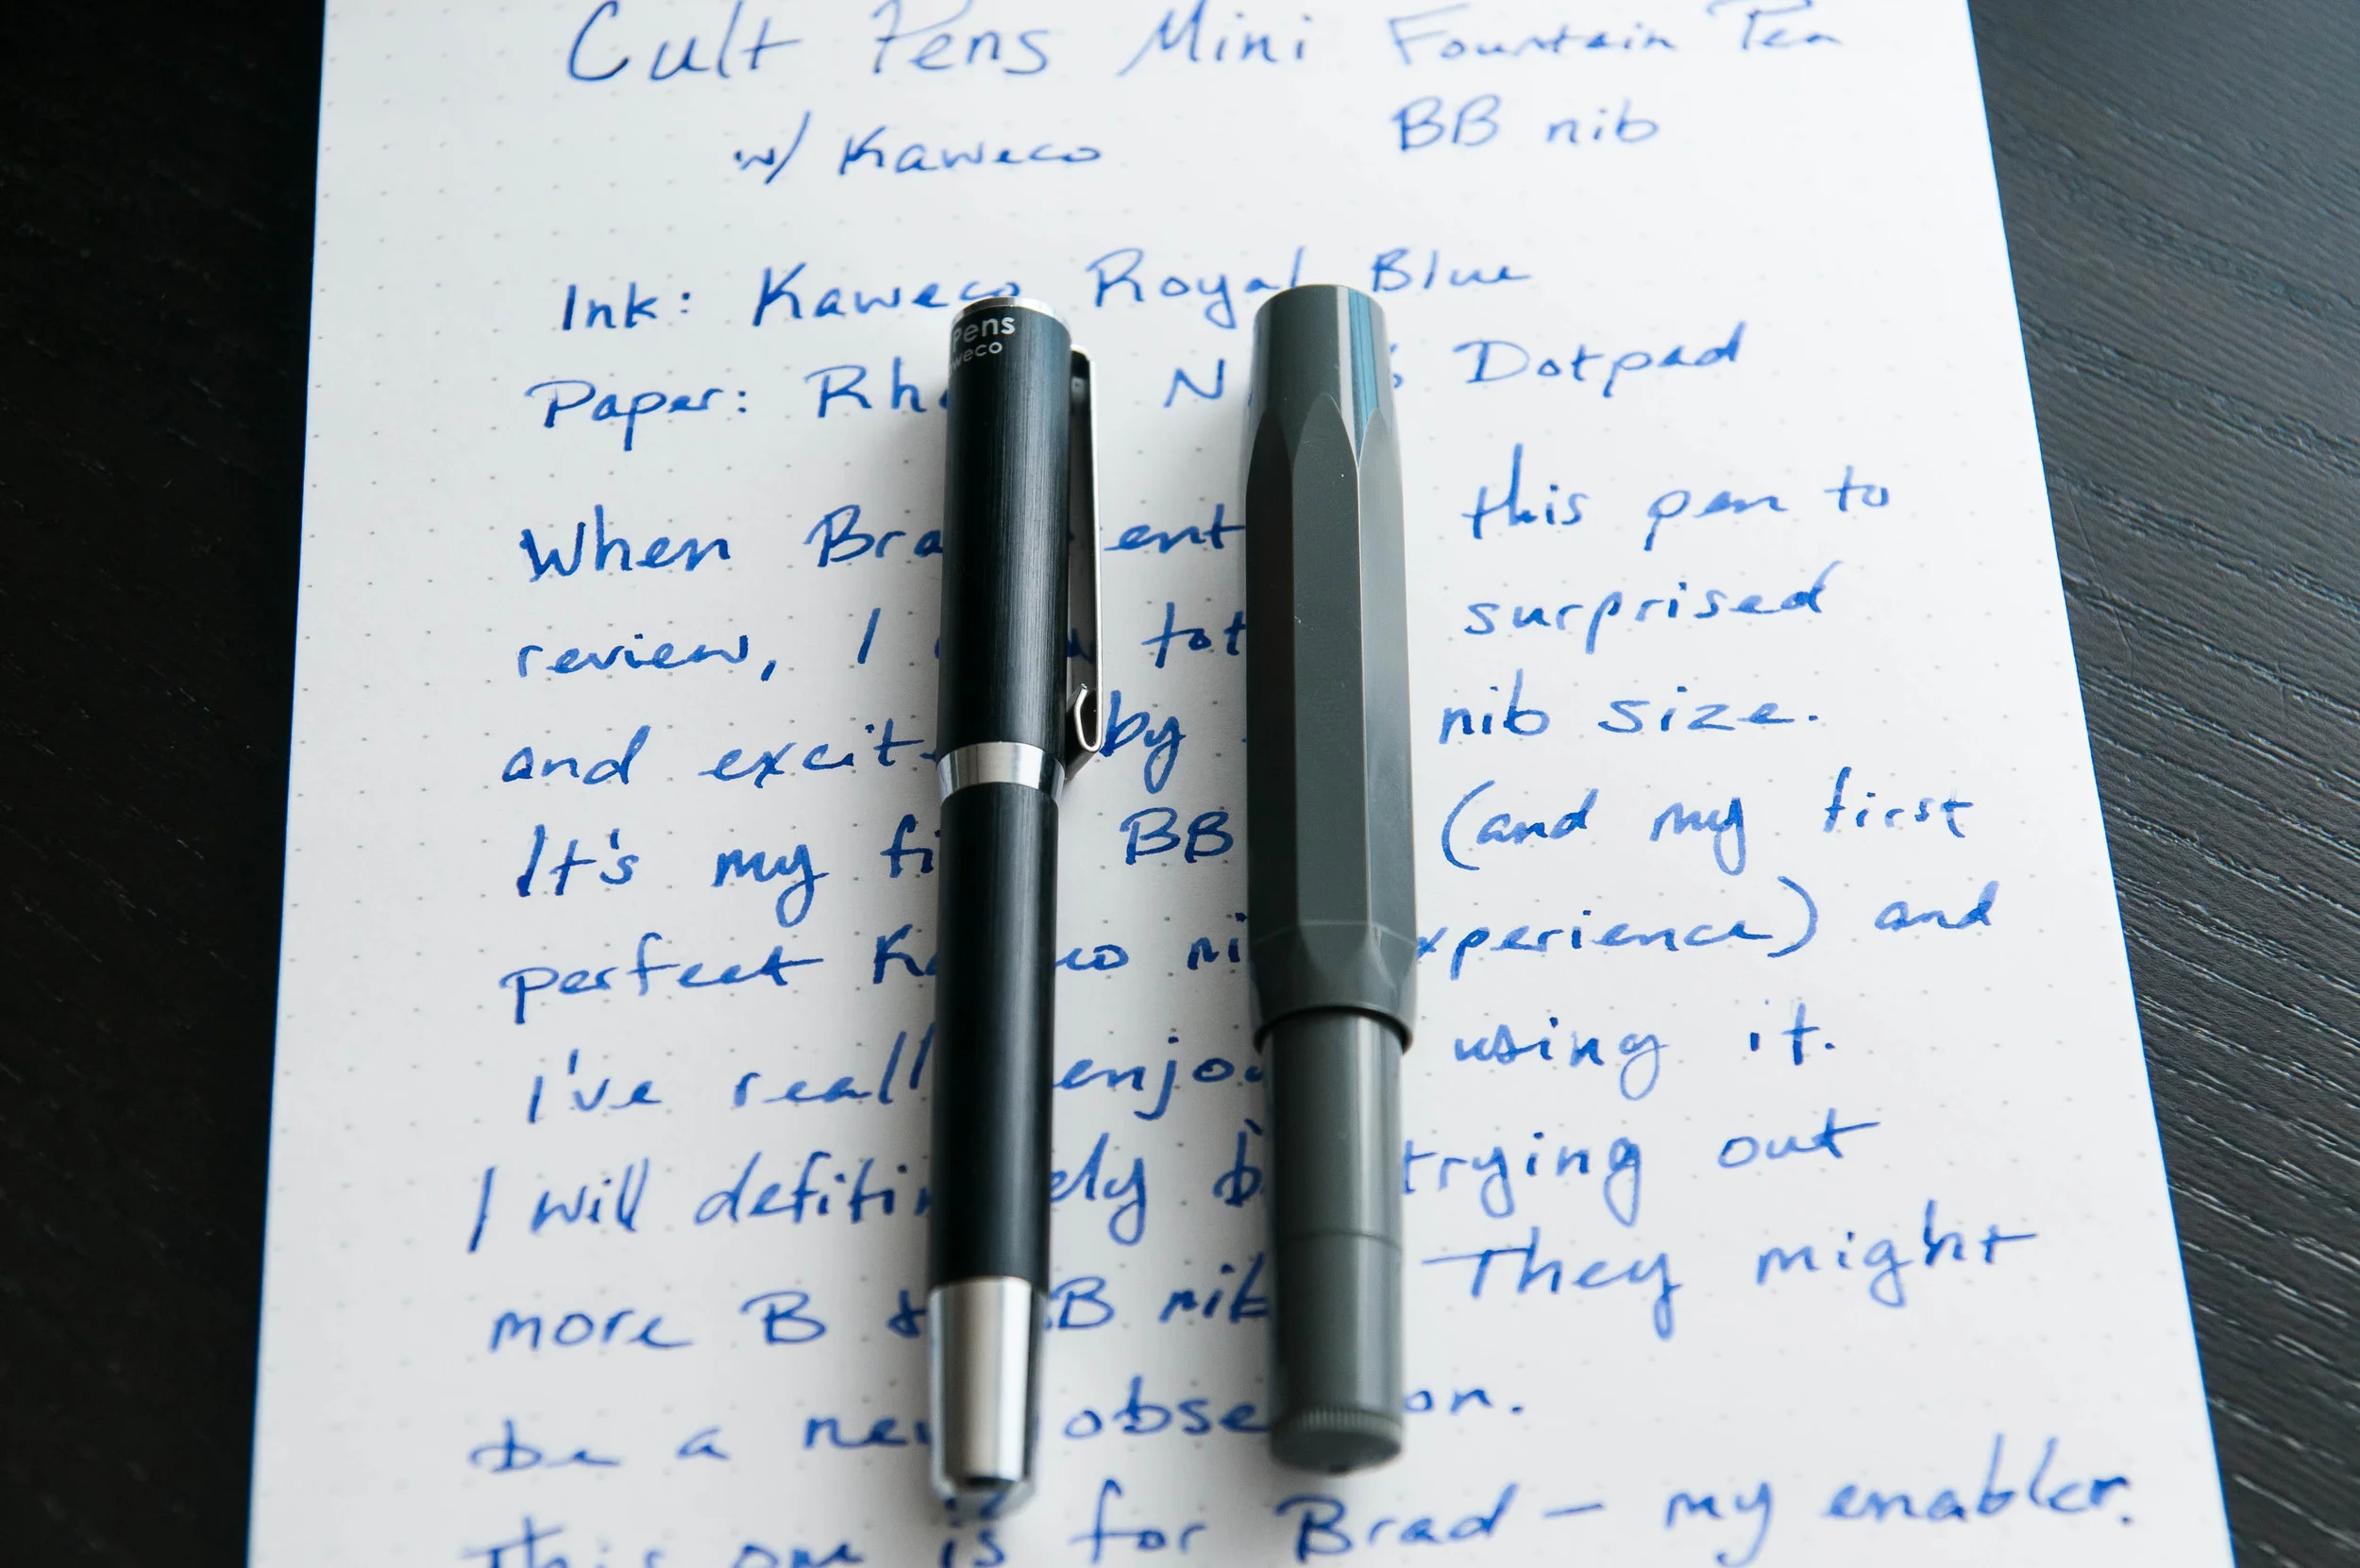 Cult Pens Mini Fountain Pen
w/ Kaweco BB nib
Ink: Kaweco Royal Blue
Paper: Rh N Dotpad
Pens
weco
When Bra ent this pen to
review, I tot surprised
and excit by nib size.
It's my fi BB (and my first
perfect K co ni xperience) and
I've reall enjo using it.
I will defitin ely b trying out
more B & B nib They might
be a new obse on.
This one is for Brad - my enabler.